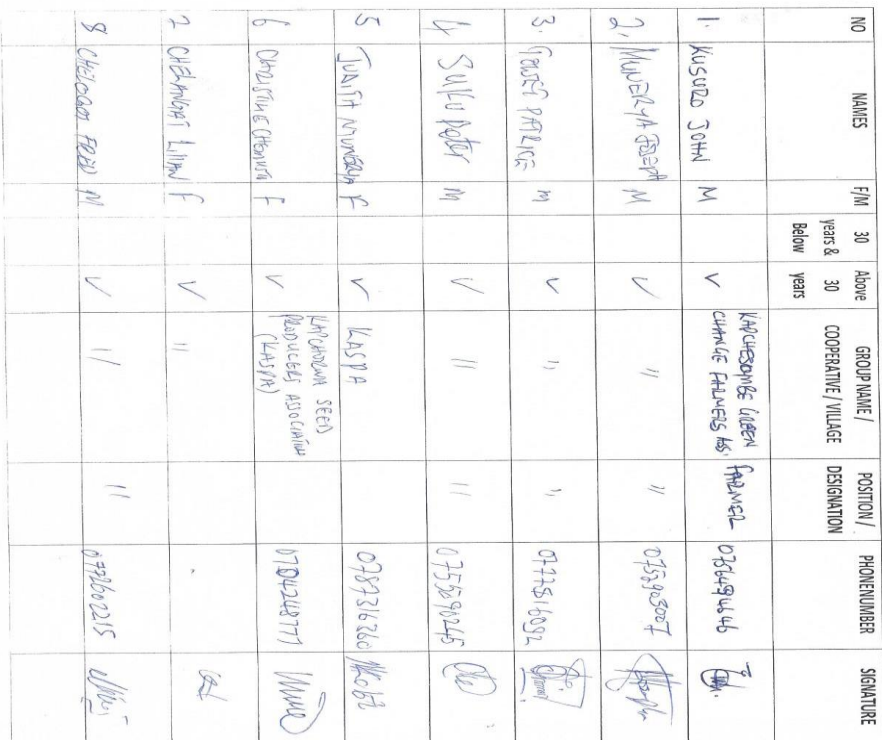 NO NAMES F/M 30 years & Below Above 30 years GROUP NAME / COOPERATIVE / VILLAGE POSITION / DESIGNATION PHONENUMBER SIGNATURE
1. KUSURO JOHN M ✓ KAPCHESOMBE GREEN CHANGE FARMERS ASS. FARMER 0786494646
2. MUNERYA JOSEPH M ✓ " " 0752903007
3. PATRICK M ✓ " " 0777816092
4 SUKU Peter M ✓ " " 0755090245
5 JUDITH F ✓ KASPA 0787316360
6 CHRISTINE F ✓ KAPCHORWA SEED PRODUCERS ASSOCIATION (KASPA) 0784248777
7 CHELANGAT LILIAN F ✓ "
8 FRED M ✓ " " 0772602215